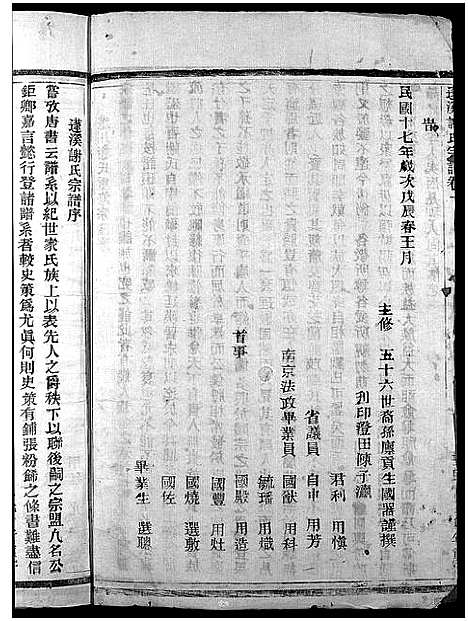 蓬溪謝氏宗譜卷一
民國十七年歲次戊辰春王月
主修 五十六世裔孫廩貢生國器謹撰
刋印澄田陳子瀛
君利 用愼
省議員 自申 用芳
南京法政畢業員 國猷 用科
毓璠 用熾
首事
國 用造
國豐 用灶
國燒 選敷
國佐
畢業生 選聰
蓬溪謝氏宗譜序
嘗攷唐書云譜系以紀世家氏族上以表先人之爵秩下以聯後嗣之宗盟凡名公
鉅卿嘉言懿行登諸譜系者較史策爲尤眞何則史策有鋪張粉餙之條書難盡信